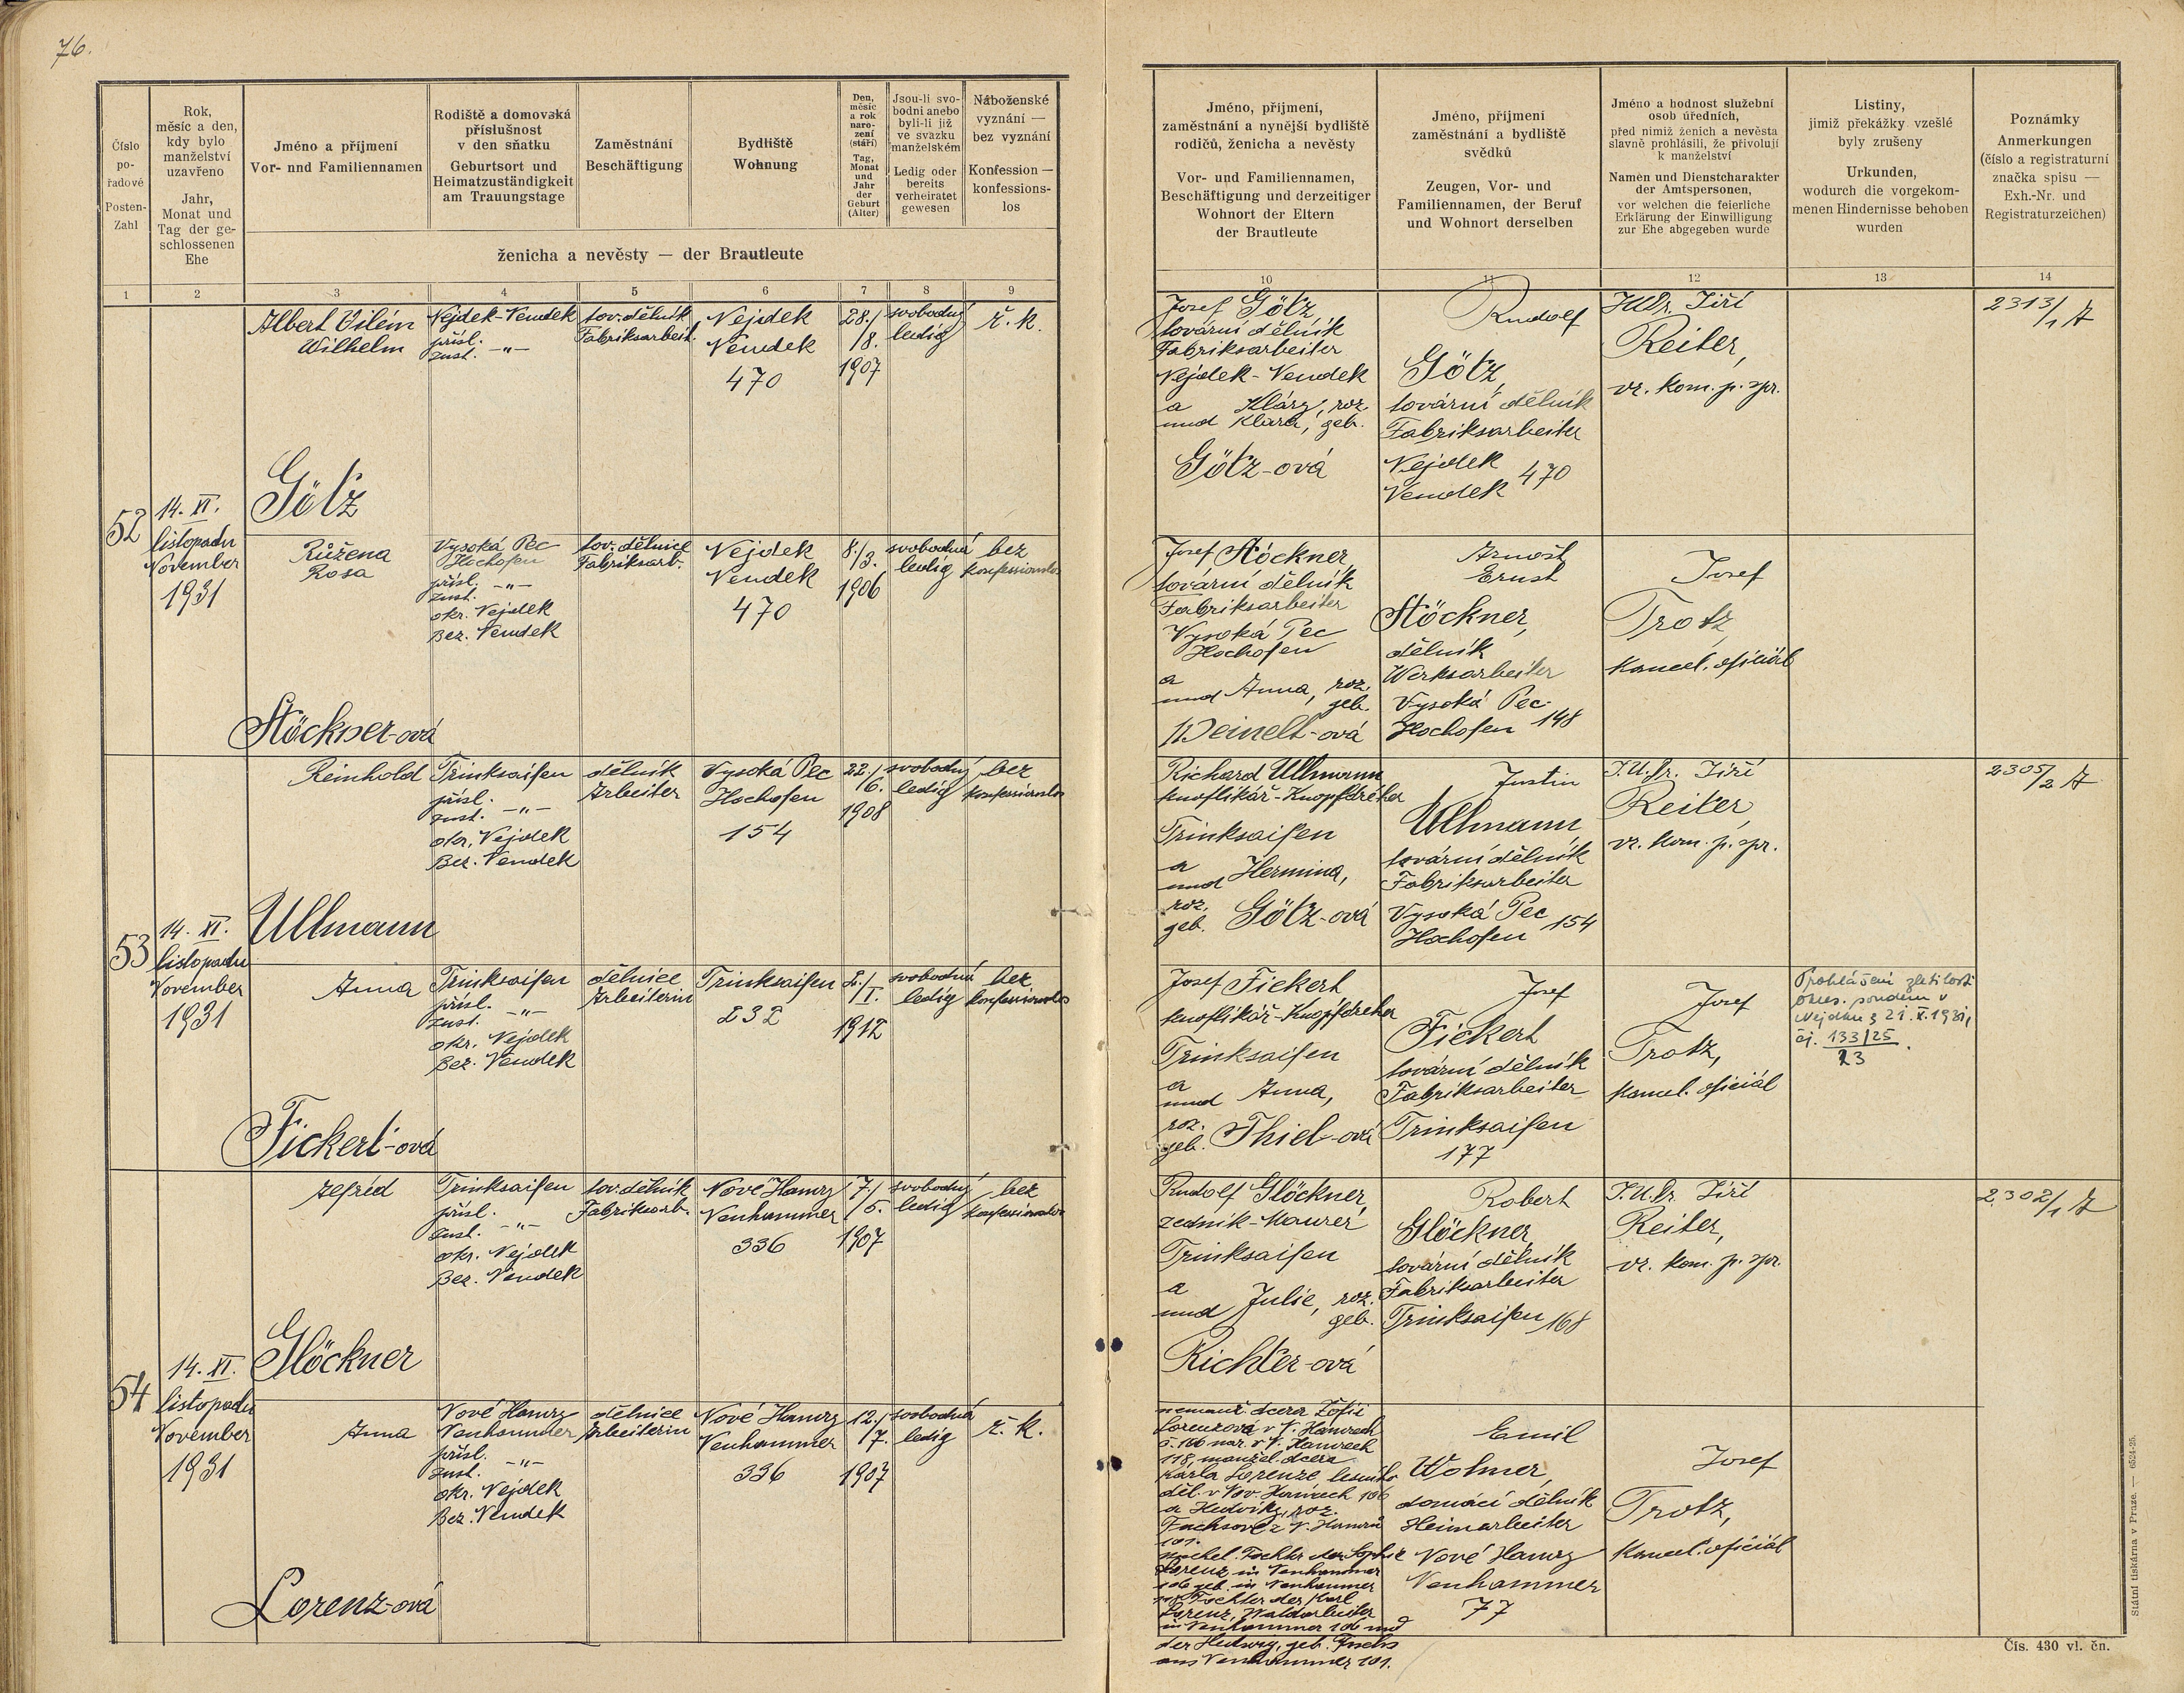 76.
Číslo
po-
řadové
Posten-
Zahl
Rok,
měsíc a den,
kdy bylo
manželství
uzavřeno
Jahr,
Monat und
Tag der ge-
schlossenen
Ehe
Jméno a příjmení
Vor- nnd Familiennamen
Rodiště a domovská
příslušnost
v den sňatku
Geburtsort und
Heimatzuständigkeit
am Trauungstage
Zaměstnání
Beschäftigung
Bydliště
Wohnung
Den,
měsíc
a rok
naro-
zení
(stáří)
Tag,
Monat
und
Jahr
der
Geburt
(Alter)
Jsou-li svo-
bodni anebo
byli-li již
ve svazku
manželském
Ledig oder
bereits
verheiratet
gewesen
Náboženské
vyznání —
bez vyznání
Konfession —
konfessions-
los
ženicha a nevěsty — der Brautleute
1 2 3 4 5 6 7 8 9
52
14. XI.
listopadu
November
1931
Albert Vilém
Wilhelm
Götz
Nejdek-Neudek
přísl.
zust. -"-
tov. dělník
Fabriksarbeit.
Nejdek
Neudek
470
28./
/8.
1907
svobodný
ledig
ř. k.
Růžena
Rosa
Stöckner-ová
Vysoká Pec
Hochofen
přísl.
zust. -"-
okr. Nejdek
Bez. Neudek
tov. dělnice
Fabriksarb.
Nejdek
Neudek
470
8./
/3.
1906
svobodná
ledig
bez
konfessionslos
53
14. XI.
listopadu
November
1931
Reinhold
Ullmann
Trinksaifen
přísl.
zust. -"-
okr. Nejdek
Bez. Neudek
dělník
Arbeiter
Vysoká Pec
Hochofen
154
22./
/6.
1908
svobodný
ledig
bez
konfessionslos
Anna
Fickert-ová
Trinksaifen
přísl.
zust. -"-
okr. Nejdek
Bez. Neudek
dělnice
Arbeiterin
Trinksaifen
232
2./
/I.
1912
svobodná
ledig
bez
konfessionslos
54
14. XI.
listopadu
November
1931
Alfréd
Glöckner
Trinksaifen
přísl.
zust. -"-
okr. Nejdek
Bez. Neudek
tov. dělník
Fabriksarb.
Nové Hamry
Neuhammer
336
7./
/5.
1907
svobodný
ledig
bez
konfessionslos
Anna
Lorenz-ová
Nové Hamry
Neuhammer
přísl.
zust. -"-
okr. Nejdek
Bez. Neudek
dělnice
Arbeiterin
Nové Hamry
Neuhammer
336
12./
/7.
1907
svobodná
ledig
ř. k.
Jméno, příjmení,
zaměstnání a nynější bydliště
rodičů, ženicha a nevěsty
Vor- und Familiennamen,
Beschäftigung und derzeitiger
Wohnort der Eltern
der Brautleute
Jméno, příjmení
zaměstnání a bydliště
svědků
Zeugen, Vor- und
Familiennamen, der Beruf
und Wohnort derselben
Jméno a hodnost služební
osob úředních,
před nimiž ženich a nevěsta
slavně prohlásili, že přivolují
k manželství
Namen und Dienstcharakter
der Amtspersonen,
vor welchen die feierliche
Erklärung der Einwilligung
zur Ehe abgegeben wurde
Listiny,
jimiž překážky vzešlé
byly zrušeny
Urkunden,
wodurch die vorgekom-
menen Hindernisse behoben
wurden
Poznámky
Anmerkungen
(číslo a registraturní
značka spisu —
Exh.-Nr. und
Registraturzeichen)
10 11 12 13 14
Josef Götz,
tovární dělník
Fabriksarbeiter
Nejdek-Neudek
a Kláry, roz.
und Klara, geb.
Götz-ová
Rudolf
Götz,
tovární dělník
Fabriksarbeiter
Nejdek
Neudek 470
JUDr. Jiří
Reiter,
vr. kom. p. spr.
2313/1 A
Josef Stöckner,
tovární dělník
Fabriksarbeiter
Vysoká Pec
Hochofen
a
und Anna, roz.
geb.
Weinelt-ová
Arnošt
Ernst
Stöckner,
dělník
Werksarbeiter
Vysoká Pec
Hochofen 148
Josef
Trotz,
kancel. oficiál
Richard Ullmann
knoflíkář-Knopfdreher
Trinksaifen
a
und Hermina,
roz.
geb. Götz-ová
Justin
Ullmann,
tovární dělník
Fabriksarbeiter
Vysoká Pec
Hochofen 154
J.U.Dr. Jiří
Reiter,
vr. kom. p. spr.
2305/2 A
Josef Fickert
knoflíkář-Knopfdreher
Trinksaifen
a
und Anna,
roz.
geb. Thiel-ová
Josef
Fickert
tovární dělník
Fabriksarbeiter
Trinksaifen
177
Josef
Trotz,
kancel. oficiál
Prohlášení zletilosti
okres. soudem v
Nejdku z 21. X. 1931,
čj. 133/25
23
Rudolf Glöckner,
zedník-Maurer
Trinksaifen
a
und Julie, roz.
geb.
Richter-ová
Robert
Glöckner,
tovární dělník
Fabriksarbeiter
Trinksaifen 168
J.U.Dr. Jiří
Reiter,
vr. kom. p. spr.
2302/1 A
nemanž. dcera Žofie
Lorenzová v N. Hamrech
č. 106 nar. v N. Hamrech
118, manžel. dcera
Karla Lorenze lesního
děl. v Nov. Hamrech 106
a Hedviky, roz.
Fuchsové z N. Hamrů
101.
unehel. Tochter der Sophie
Lorenz in Neuhammer
106 geb. in Neuhammer
118 Tochter des Karl
Lorenz, Waldarbeiter
in Neuhammer 106 und
der Hedwig, geb. Fuchs
aus Neuhammer 101.
Emil
Wolmer,
domácí dělník
Heimarbeiter
Nové Hamry
Neuhammer
77
Josef
Trotz,
kancel. oficiál
Státní tiskárna v Praze. — 6524-25.
Čís. 430 vl. čn.